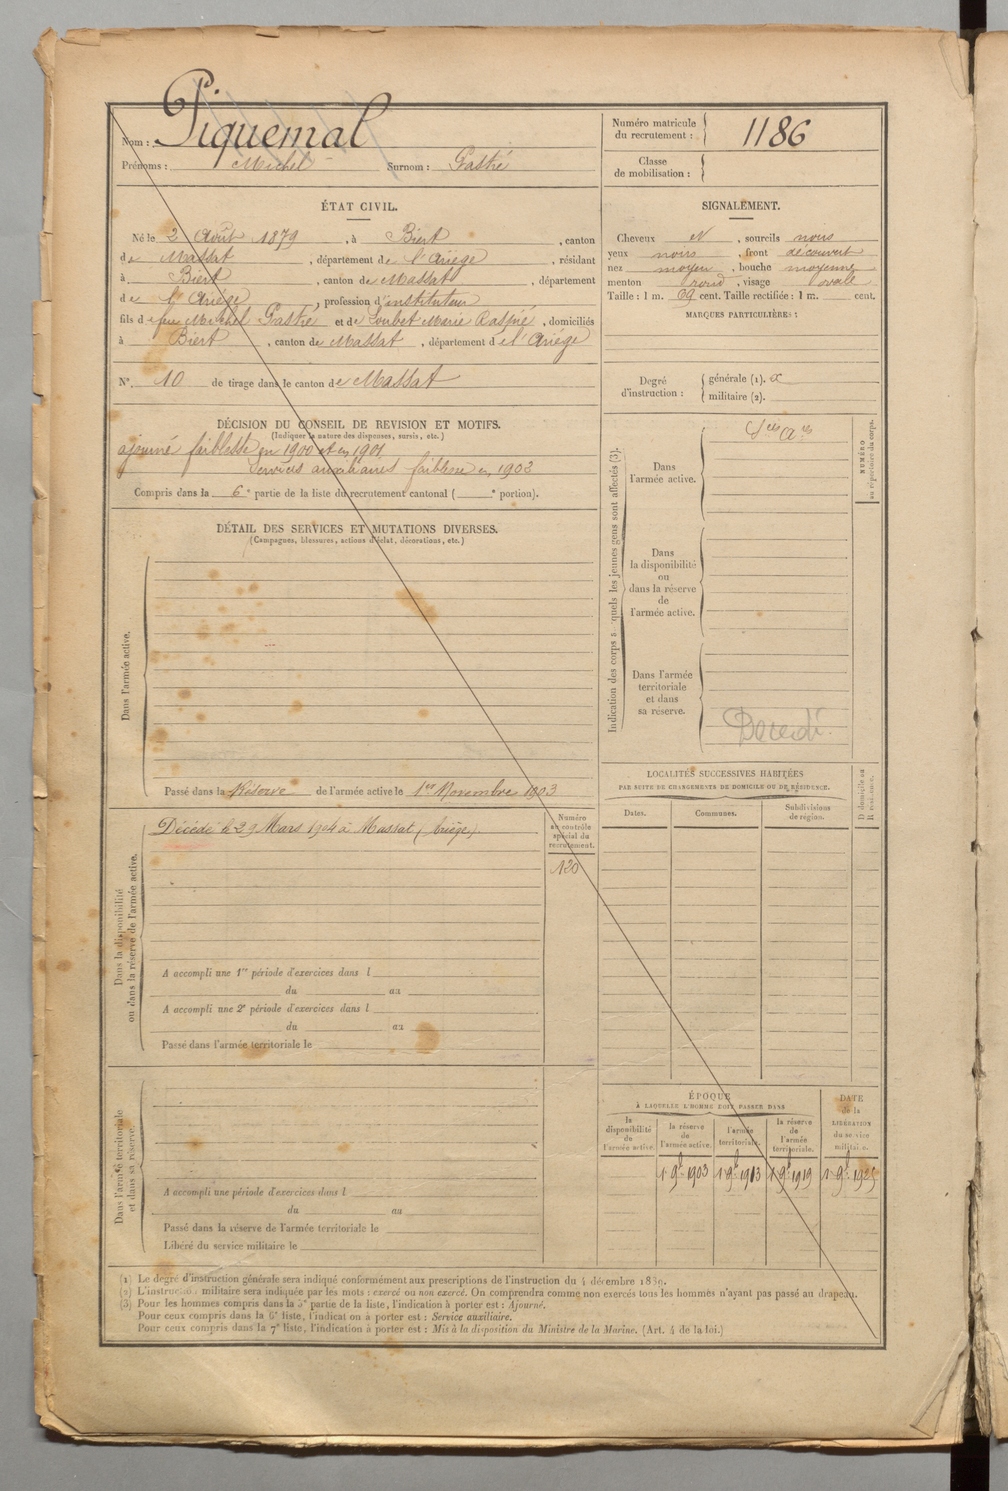 Nom : Piquemal
Prénoms : Michel Surnom : Gastié
Numéro matricule
du recrutement : 1186
Classe
de mobilisation :
ÉTAT CIVIL.
Né le 2 Août 1879, à Biert, canton
de Massat, département de l'Ariège, résidant
à Biert, canton de Massat, département
de l'Ariège, profession d'instituteur
fils de feu Michel Gastié et de Loubet Marie, domiciliés
à Biert, canton de Massat, département de l'Ariège
N° 10 de tirage dans le canton de Massat
SIGNALEMENT.
Cheveux N, sourcils noirs
yeux noirs, front découvert
nez moyen, bouche moyenne
menton rond, visage ovale
Taille : 1 m. 69 cent. Taille rectifiée : 1 m. cent.
MARQUES PARTICULIÈRES :
Degré
d'instruction :
générale (1).
militaire (2).
DÉCISION DU CONSEIL DE REVISION ET MOTIFS.
(Indiquer la nature des dispenses, sursis, etc.)
ajourné faiblesse en 1900 et en 1901
Services auxiliaires faiblesse en 1902
Compris dans la 6e partie de la liste du recrutement cantonal ( e portion).
DÉTAIL DES SERVICES ET MUTATIONS DIVERSES.
(Campagnes, blessures, actions d'éclat, décorations, etc.)
Dans l'armée active.
Passé dans la Réserve de l'armée active le 1er Novembre 1903
Indication des corps auxquels les jeunes gens sont affectés (3).
Sces Ares
Dans
l'armée active.
Dans
la disponibilité
ou
dans la réserve
de
l'armée active.
Dans l'armée
territoriale
et dans
sa réserve.
Décédé.
NUMÉRO
au répertoire du corps.
Dans la disponibilité
ou dans la réserve de l'armée active.
Décédé le 29 Mars 1904 à Massat (Ariège).
Numéro
au contrôle
spécial du
recrutement.
120
A accompli une 1re période d'exercices dans l
du au
A accompli une 2e période d'exercices dans l
du au
Passé dans l'armée territoriale le
LOCALITÉS SUCCESSIVES HABITÉES
PAR SUITE DE CHANGEMENTS DE DOMICILE OU DE RÉSIDENCE.
Dates.
Communes.
Subdivisions
de région.
D domicile ou
R résidence.
Dans l'armée territoriale
et dans sa réserve.
A accompli une période d'exercices dans l
du au
Passé dans la réserve de l'armée territoriale le
Libéré du service militaire le
ÉPOQUE
À LAQUELLE L'HOMME DOIT PASSER DANS
la
disponibilité
de
l'armée active.
la réserve
de
l'armée active.
l'armée
territoriale.
la réserve
de
l'armée
territoriale.
DATE
de la
LIBÉRATION
du service
militaire.
1er 9bre 1903 1er 9bre 1913 1er 9bre 1919 1er 9bre 1925
(1) Le degré d'instruction générale sera indiqué conformément aux prescriptions de l'instruction du 4 décembre 1889.
(2) L'instruction militaire sera indiquée par les mots : exercé ou non exercé. On comprendra comme non exercés tous les hommes n'ayant pas passé au drapeau.
(3) Pour les hommes compris dans la 5e partie de la liste, l'indication à porter est : Ajourné.
Pour ceux compris dans la 6e liste, l'indication à porter est : Service auxiliaire.
Pour ceux compris dans la 7e liste, l'indication à porter est : Mis à la disposition du Ministre de la Marine. (Art. 4 de la loi.)